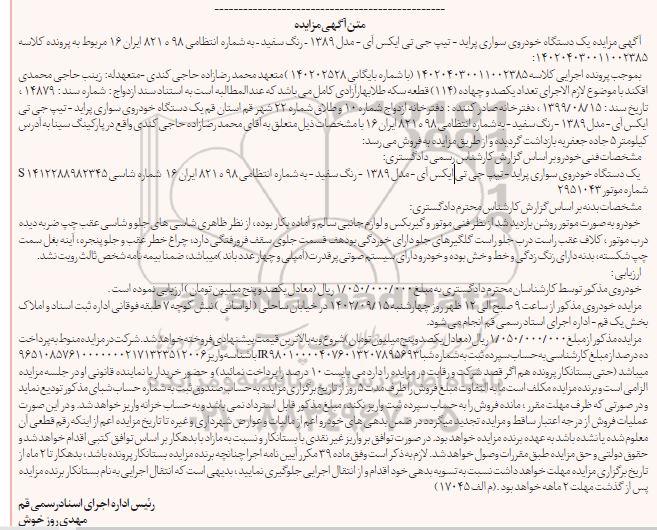 متن آگهی مزایده
آگهی مزایده یک دستگاه خودروی سواری پراید - تیپ جی تی ایکس آی - مدل ۱۳۸۹ - رنگ سفید - به شماره انتظامی ۹۸ ه ۸۲۱ ایران ۱۶ مربوط به پرونده کلاسه ۱۴۰۲۰۴۰۳۰۰۱۱۰۰۲۳۸۵ :
بموجب پرونده اجرایی کلاسه ۱۴۰۲۰۴۰۳۰۰۱۱۰۰۲۳۸۵ (با شماره بایگانی ۱۴۰۲۰۲۵۲۸) متعهد محمد رضازاده حاجی کندی - متعهدله: زینب حاجی محمدی
افکند با موضوع لازم الاجرای تعداد یکصد و چهارده (۱۱۴) قطعه سکه طلا بهار آزادی کامل می باشد که عندالمطالبه است به استناد سند ازدواج : شماره سند : ۱۴۸۷۹ ،
تاریخ سند : ۱۳۹۹/۰۸/۱۵ ، دفترخانه صادر کننده : دفترخانه ازدواج شماره ۱۰ و طلاق شماره ۲۲ شهر قم استان قم یک دستگاه خودروی سواری پراید - تیپ جی تی
ایکس آی - مدل ۱۳۸۹ - رنگ سفید - به شماره انتظامی ۹۸ ه ۸۲۱ ایران ۱۶ با مشخصات ذیل متعلق به آقای محمد رضازاده حاجی کندی واقع در پارکینگ سینا به آدرس
کیلومتر ۵ جاده جعفریه بازداشت گردیده و از طریق مزایده به فروش می رسد:
مشخصات فنی خودرو بر اساس گزارش کارشناس رسمی دادگستری:
یک دستگاه خودروی سواری پراید - تیپ جی تی ایکس آی - مدل ۱۳۸۹ - رنگ سفید - به شماره انتظامی ۹۸ ه ۸۲۱ ایران ۱۶ شماره شاسی S۱۴۱۲۲۸۸۹۸۲۳۴۵
شماره موتور ۲۹۵۱۰۴۳
مشخصات بدنه بر اساس گزارش کارشناس محترم دادگستری:
خودرو به صورت موتور روشن بازدید شد از نظر فنی موتور و گیربکس و لوازم جانبی سالم و آماده بکار بوده، از نظر ظاهری شاسی های جلو و شاسی عقب چپ ضربه دیده
درب موتور ، کلاف عقب راست درب جلو راست گلگیرهای جلو دارای خوردگی بود هف قسمت جلوی سقف فرورفتگی دارد، چراغ خطر عقب و جلو پنجره، آینه بغل سمت
چپ شکسته، بدنه دارای رنگ زدگی و خط و خش بوده و خودرو دارای سیستم صوتی پرقدرت (آمپلی و چهار عدد باند) میباشد، ضمنا بیمه نامه شخص ثالث رویت نشد.
ارزیابی:
خودروی مذکور توسط کارشناسان محترم دادگستری به مبلغ ۱/۰۵۰/۰۰۰/۰۰۰ ریال (معادل یکصد و پنج میلیون تومان) ارزیابی نموده است .
مزایده خودروی مذکور از ساعت ۹ صبح الی ۱۲ ظهر روز چهارشنبه ۱۴۰۲/۰۹/۱۵ در خیابان ساحلی (لواسانی) نبش کوچه ۷ طبقه فوقانی اداره ثبت اسناد و املاک
بخش یک قم - اداره اجرای اسناد رسمی قم انجام می شود.
مزایده مذکور از مبلغ ۱/۰۵۰/۰۰۰/۰۰۰ ریال (معادل یکصد و پنج میلیون تومان) شروع و به بالاترین قیمت پیشنهادی فروخته خواهد شد. شرکت در مزایده منوط به پرداخت
ده درصد از مبلغ کارشناسی به حساب سپرده ثبت به شماره شبا IR۹۸۰۱۰۰۰۰۴۰۷۶۰۱۳۲۰۷۸۹۵۶۹۳ با شناسه واریز ۹۶۵۱۰۸۵۷۶۱۰۰۰۰۰۰۰۲۱۷۱۳۲۳۵۱۲۰۰۶
میباشد (حتی بستانکار پرونده هم اگر قصد شرکت و رقابت در مزایده را دارد می بایست ۱۰ درصد را پرداخت نمائید) و حضور خریدار یا نماینده قانونی او در جلسه مزایده
الزامی است و برنده مزایده مکلف است ما به التفاوت مبلغ فروش را ظرف مدت ۵ روز از تاریخ برگزاری مزایده به حساب صندوق ثبت به شماره حساب شبای مذکور تودیع نماید
و در صورتی که ظرف مهلت مقرر ، مانده فروش را به حساب سپرده ثبت واریز نکند، مبلغ مذکور قابل استرداد نمی باشد و به حساب خزانه واریز خواهد شد. و در این صورت
عملیات فروش از درجه اعتبار ساقط و مزایده تجدید میگردد در ضمن بدهی های خودرو اعم از مالیات و عوارض شهرداری و غیره تا تاریخ مزایده اعم از اینکه رقم قطعی آن
معلوم شده یا نشده باشد به عهده برنده مزایده خواهد بود. در صورت توافق بر واریز غیر نقدی با بستانکار و نسبت به مازاد با بدهکار بر اساس توافق کتبی اقدام خواهد شد و
حقوق دولتی و حق مزایده طبق مقررات وصول خواهد شد. لازم به ذکر است وفق ماده ۳۹ مکرر آیین نامه اجرا چنانچه برنده مزایده بستانکار پرونده باشد ، بدهکار تا ۲ ماه از
تاریخ برگزاری مزایده مهلت خواهد داشت نسبت به تسویه بدهی خود اقدام و از انتقال اجرایی جلوگیری نمایید ، بدیهی است که انتقال اجرایی به نام بستانکار برنده مزایده
پس از گذشت مهلت ۲ ماهه خواهد بود. (م الف ۱۷۰۴۵)
رئیس اداره اجرای اسناد رسمی قم
مهدی روز خوش